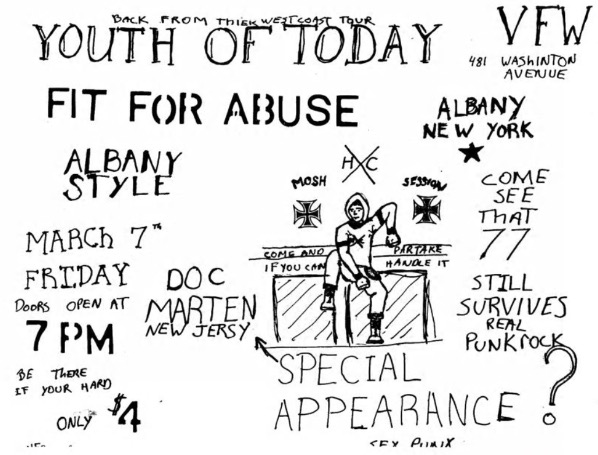 BACK FROM THIER WEST COAST TOUR
YOUTH OF TODAY
VFW
481 WASHINTON
AVENUE
FIT FOR ABUSE
ALBANY
NEW YORK
ALBANY
STYLE
H X C
MOSH SESSION
COME
SEE
THAT
77
MARCH 7TH
FRIDAY
DOORS OPEN AT
7 PM
COME AND PARTAKE
IF YOU CAN HANDLE IT
DOC
MARTEN
NEW JERSY
STILL
SURVIVES
REAL
PUNKROCK
BE THERE
IF YOUR HARD
ONLY $4
SPECIAL
APPEARANCE ?